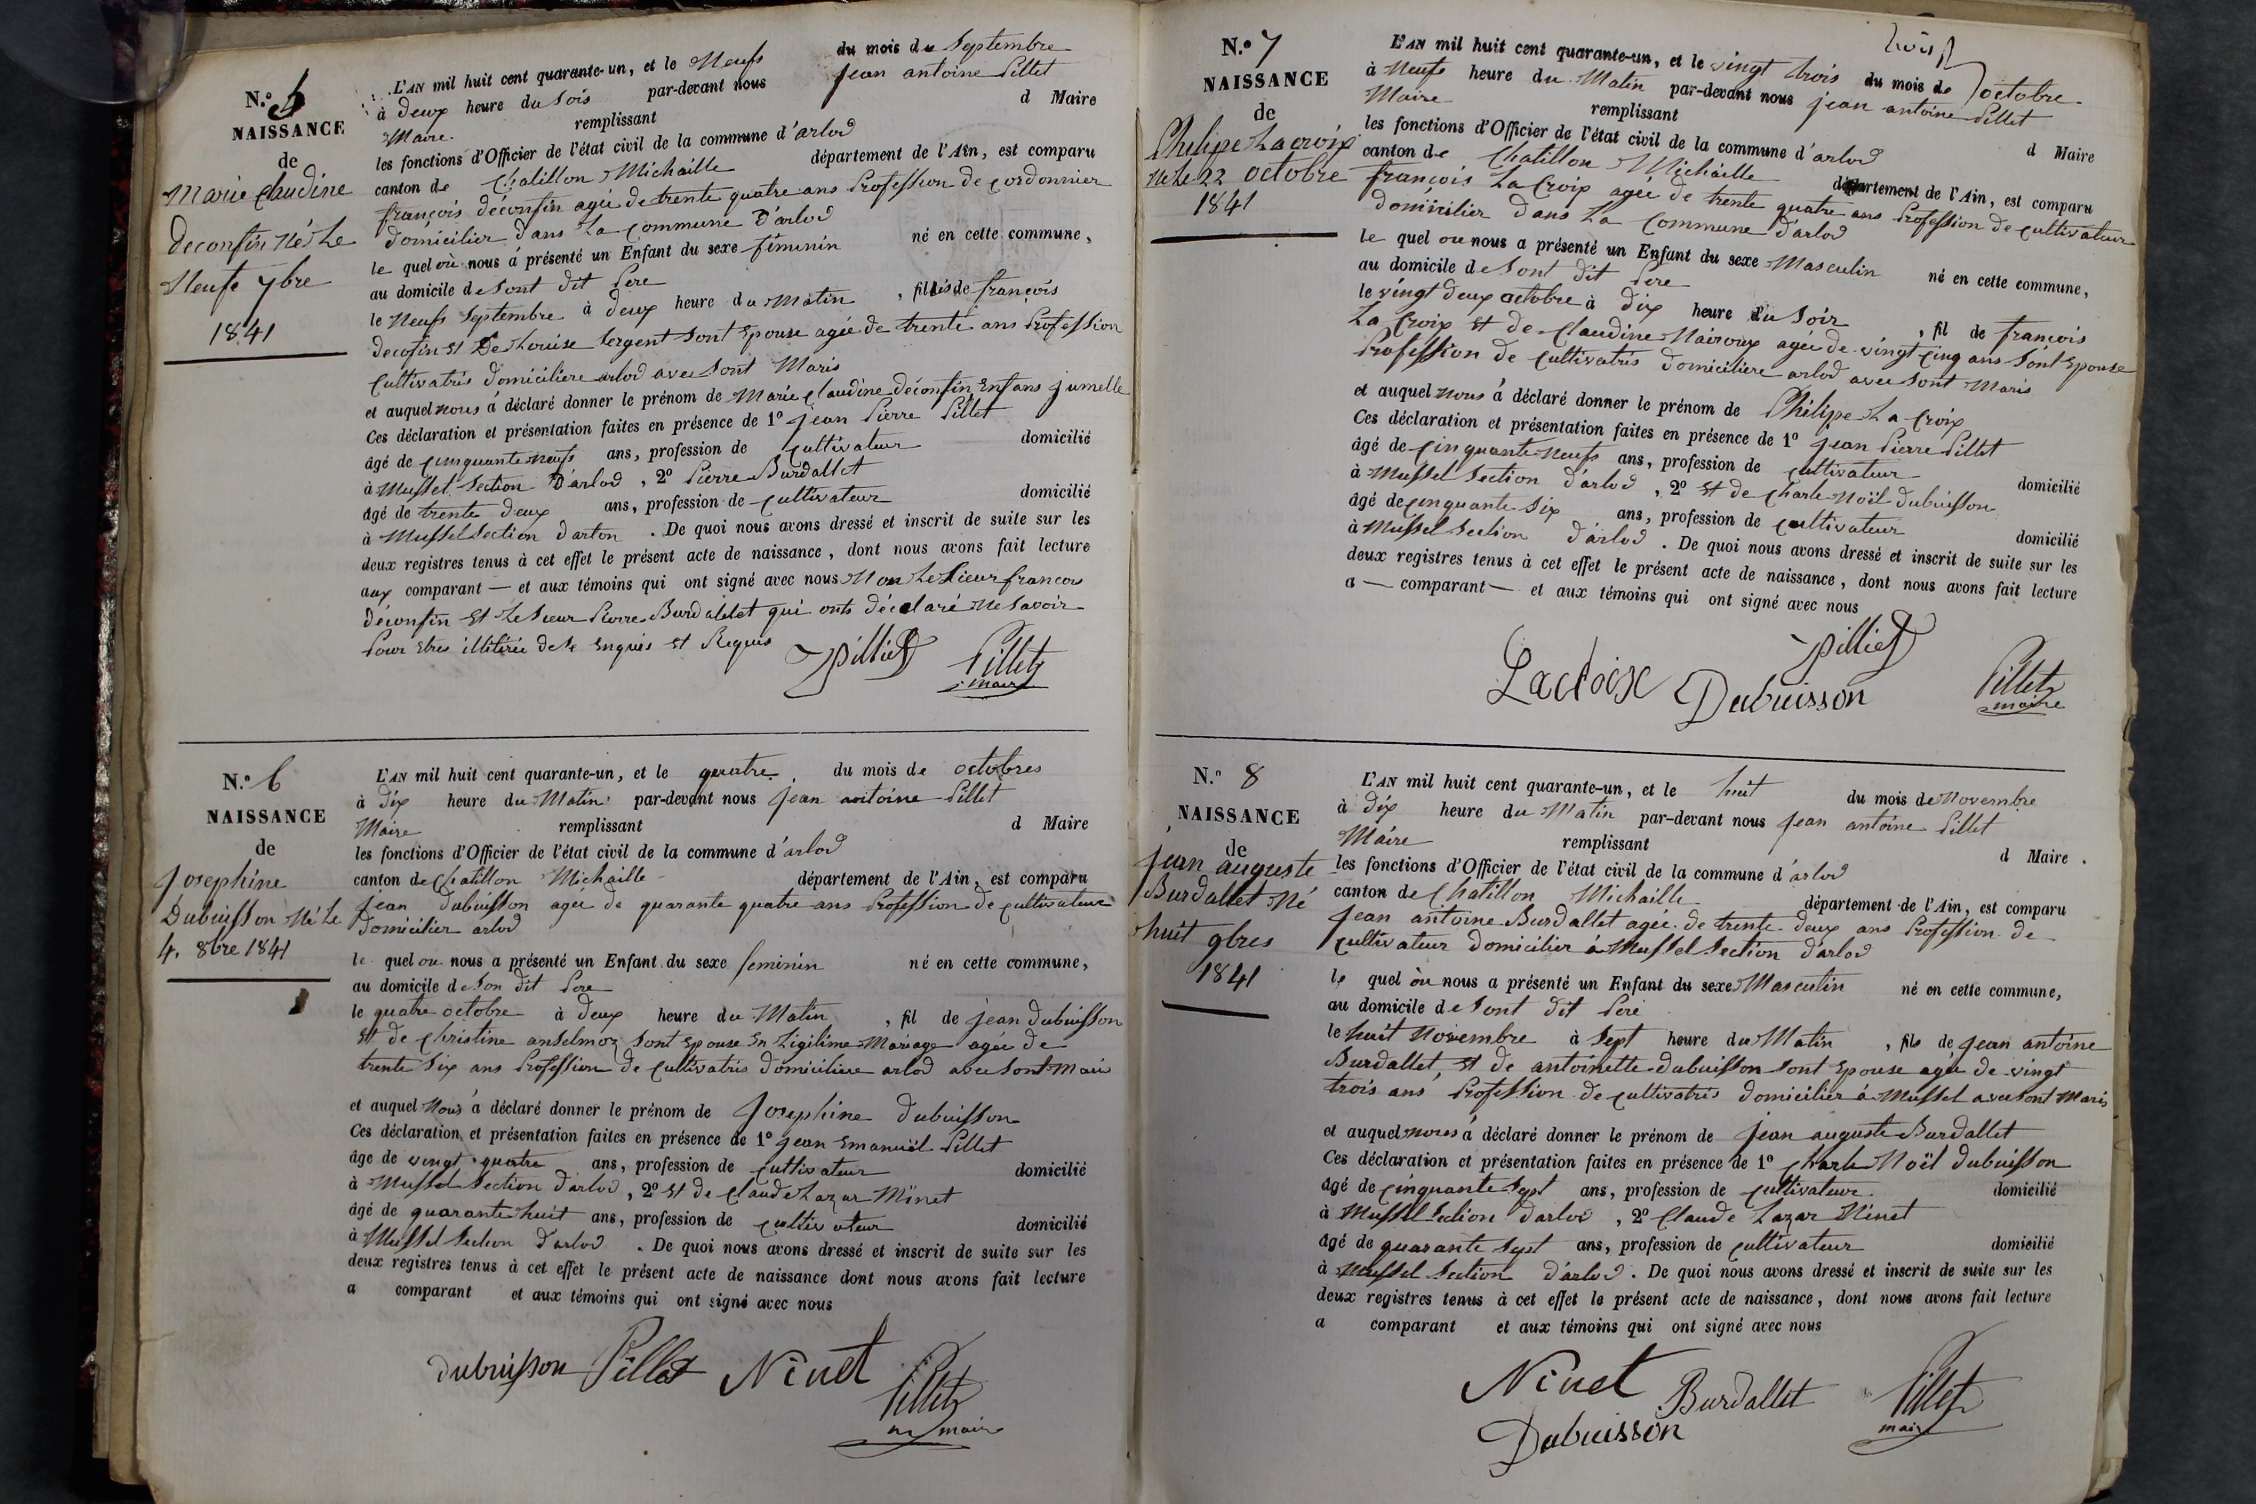 N.º 5
NAISSANCE
de
Marie Claudine
deconfin Né Le
Neufs 7bre
1841
L'AN mil huit cent quarante-un, et le Neufs du mois de Septembre
à deux heure du Sois par-devant nous jean antoine Pillet
Maire. remplissant d Maire
les fonctions d'Officier de l'état civil de la commune d'arlod
canton de Chatillon Michaille département de l'Ain, est comparu
françois déconfin agée de trente quatre ans Profession de Cordonnier
domicilier dans La Commune D'arlod
le quel où nous á présenté un Enfant du sexe féminin né en cette commune,
au domicile de Sont dit Pere
le Neufs Septembre à deux heure du Matin , fil de françois
decofin Et De Louise Sergent Sont Epouse agée de trente ans Profession
Cultivatris domiciliere arlod avec Sont Maris
et auquel nous á déclaré donner le prénom de Marie Claudine déconfin Enfans jumelle
Ces déclaration et présentation faites en présence de 1º jean Pierre Pillet
âgé de Cinquante Neufs ans, profession de Cultivateur domicilié
à Mussel Section D'arlod , 2º Pierre Burdallet
âgé de trente deux ans, profession de Cultivateur domicilié
à Mussel Section d'arton . De quoi nous avons dressé et inscrit de suite sur les
deux registres tenus à cet effet le présent acte de naissance, dont nous avons fait lecture
aux comparant — et aux témoins qui ont signé avec nous Non Le Sieur francois
déconfin Et Le Sieur Pierre Burdallet qui onts déclaré Ne Savoir
Pour Etres illitirée de Enquis Et Requis
JPPilliet Pillet
maire
N.º 6
NAISSANCE
de
Josephine
Dubuisson Né Le
4. 8bre 1841
L'AN mil huit cent quarante-un, et le quatre du mois de octobres
à dix heure du Matin par-devant nous jean antoine Pillet
Maire remplissant d Maire
les fonctions d'Officier de l'état civil de la commune d'arlod
canton de Chatillon Michaille département de l'Ain, est comparu
jean dubuisson agée de quarante quatre ans Profession de Cultivateur
Domicilier arlod
le quel ou nous a présenté un Enfant du sexe feminin né en cette commune,
au domicile de Son dit Pere
le quatre octobre à deux heure du Matin , fil de jean dubuisson
Et de Christine anselmoz Sont Epouse En Ligitime Mariage agée de
trente Six ans Profession de Cultivatris domiciliere arlod avec Sont Mari
et auquel Nous á déclaré donner le prénom de Josephine dubuisson
Ces déclaration et présentation faites en présence de 1º jean Emanuël Pillet
âge de vingt quatre ans, profession de Cultivateur domicilié
à Mussel Section d'arlod , 2º Et de Claude Lazar Ninet
âgé de quarante huit ans, profession de Cultivateur domicilié
à Mussel Section d'arlod . De quoi nous avons dressé et inscrit de suite sur les
deux registres tenus à cet effet le présent acte de naissance dont nous avons fait lecture
a comparant et aux témoins qui ont signé avec nous
dubuisson Pillet Ninet Pillet
maire
N.º 7
NAISSANCE
de
Philipe Lacroix
Né Le 22 octobre
1841
trois
L'AN mil huit cent quarante-un, et le vingt trois du mois de octobre
à Neufs heure du Matin par-devant nous jean antoine Pillet
Maire remplissant d Maire
les fonctions d'Officier de l'état civil de la commune d'arlod
canton de Chatillon Michaille département de l'Ain, est comparu
françois La Croix agée de trente quatre ans Profession de Cultivateur
domicilier dans La Commune d'arlod
le quel ou nous a présenté un Enfant du sexe Masculin né en cette commune,
au domicile de Sont dit Pere
le vingt deux octobre à dix heure du Soir , fil de françois
La Croix Et de Claudine Mairoux agée de vingt Cinq ans Sont Epouse
Profession de Cultivatris domiciliere arlod avec Sont Maris
et auquel nous á déclaré donner le prénom de Philipe La Croix
Ces déclaration et présentation faites en présence de 1º jean Pierre Pillet
âgé de Cinquante Neufs ans, profession de Cultivateur domicilié
à Mussel Section d'arlod , 2º Et de Charle Noël dubuisson
âgé de Cinquante Six ans, profession de Cultivateur domicilié
à Mussel Section d'arlod . De quoi nous avons dressé et inscrit de suite sur les
deux registres tenus à cet effet le présent acte de naissance, dont nous avons fait lecture
a — comparant — et aux témoins qui ont signé avec nous
JPPilliet
Lacroix Dubuisson Pillet
maire
N.º 8
NAISSANCE
de
jean auguste
Burdallet Né
huit 9bres
1841
L'AN mil huit cent quarante-un, et le huit du mois de Novembre
à dix heure du Matin par-devant nous jean antoine Pillet
Maire remplissant d Maire.
les fonctions d'Officier de l'état civil de la commune d'arlod
canton de Chatillon Michaille département de l'Ain, est comparu
jean antoine Burdallet agée de trente deux ans Profession de
Cultivateur domicilier à Mussel Section d'arlod
le quel ou nous a présenté un Enfant du sexe Masculin né en cette commune,
au domicile de Sont dit Pere
le huit Novembre à Sept heure du Matin , fils de jean antoine
Burdallet, Et de antoinette dubuisson Sont Epouse agée de vingt
trois ans Profession de Cultivatris domicilier á Mussel avec Sont Maris
et auquel nous á déclaré donner le prénom de jean auguste Burdallet
Ces déclaration et présentation faites en présence de 1º Charle Noël dubuisson
âgé de Cinquante Sept ans, profession de Cultivateur. domicilié
à Mussel Section d'arlod , 2º Claude Lazar Ninet
âgé de quarante Sept ans, profession de Cultivateur domicilié
à Mussel Section d'arlod . De quoi nous avons dressé et inscrit de suite sur les
deux registres tenus à cet effet le présent acte de naissance, dont nous avons fait lecture
a comparant et aux témoins qui ont signé avec nous
Ninet Burdallet Pillet
Dubuisson maire